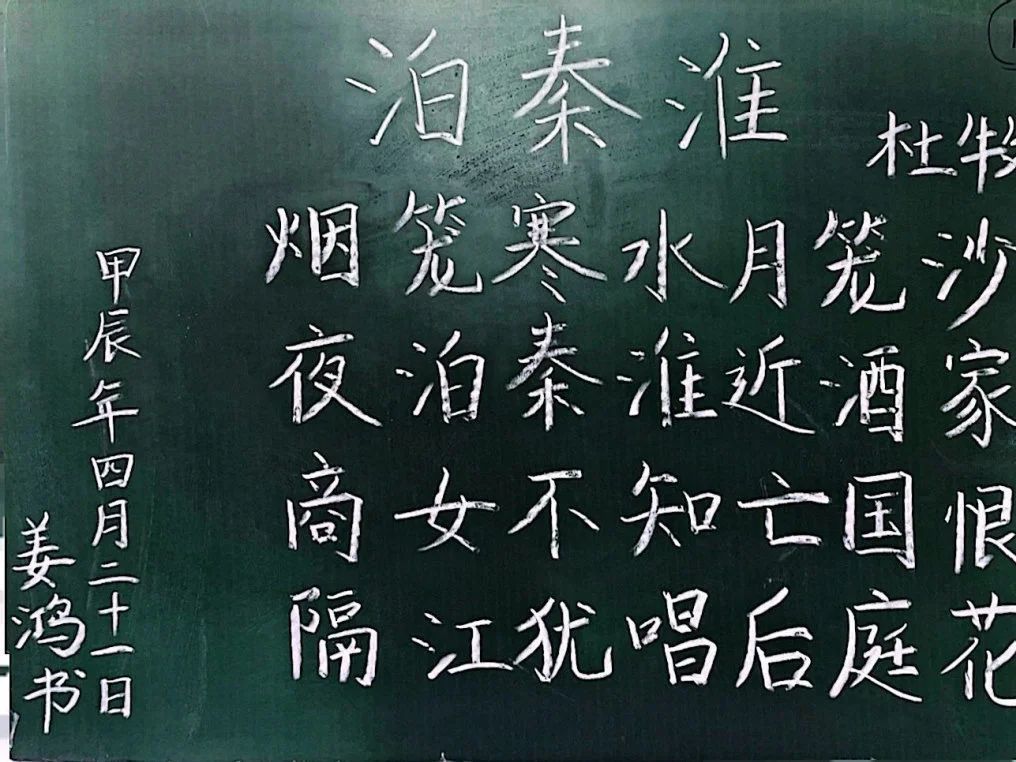 泊秦淮
杜牧
烟笼寒水月笼沙
夜泊秦淮近酒家
商女不知亡国恨
隔江犹唱后庭花
甲辰年四月二十一日
姜鸿书